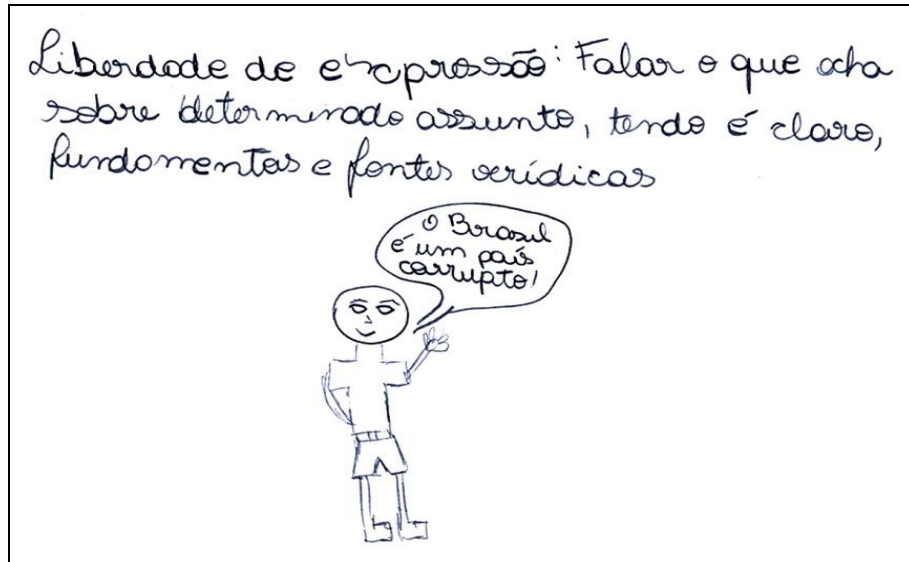 Liberdade de expressão: Falar o que acha
sobre determinado assunto, tendo é claro,
fundamentos e fontes verídicas
O Brasil
é um país
corrupto!